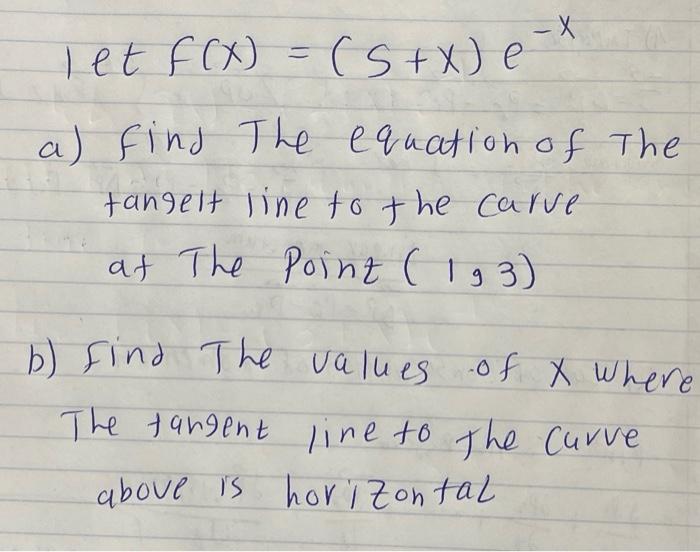 let f(x) = (5+x) e^-x
a) find The equation of The
tangelt line to the carve
at The Point (1,3)
b) find The values of x where
The tangent line to the curve
above is horizontal